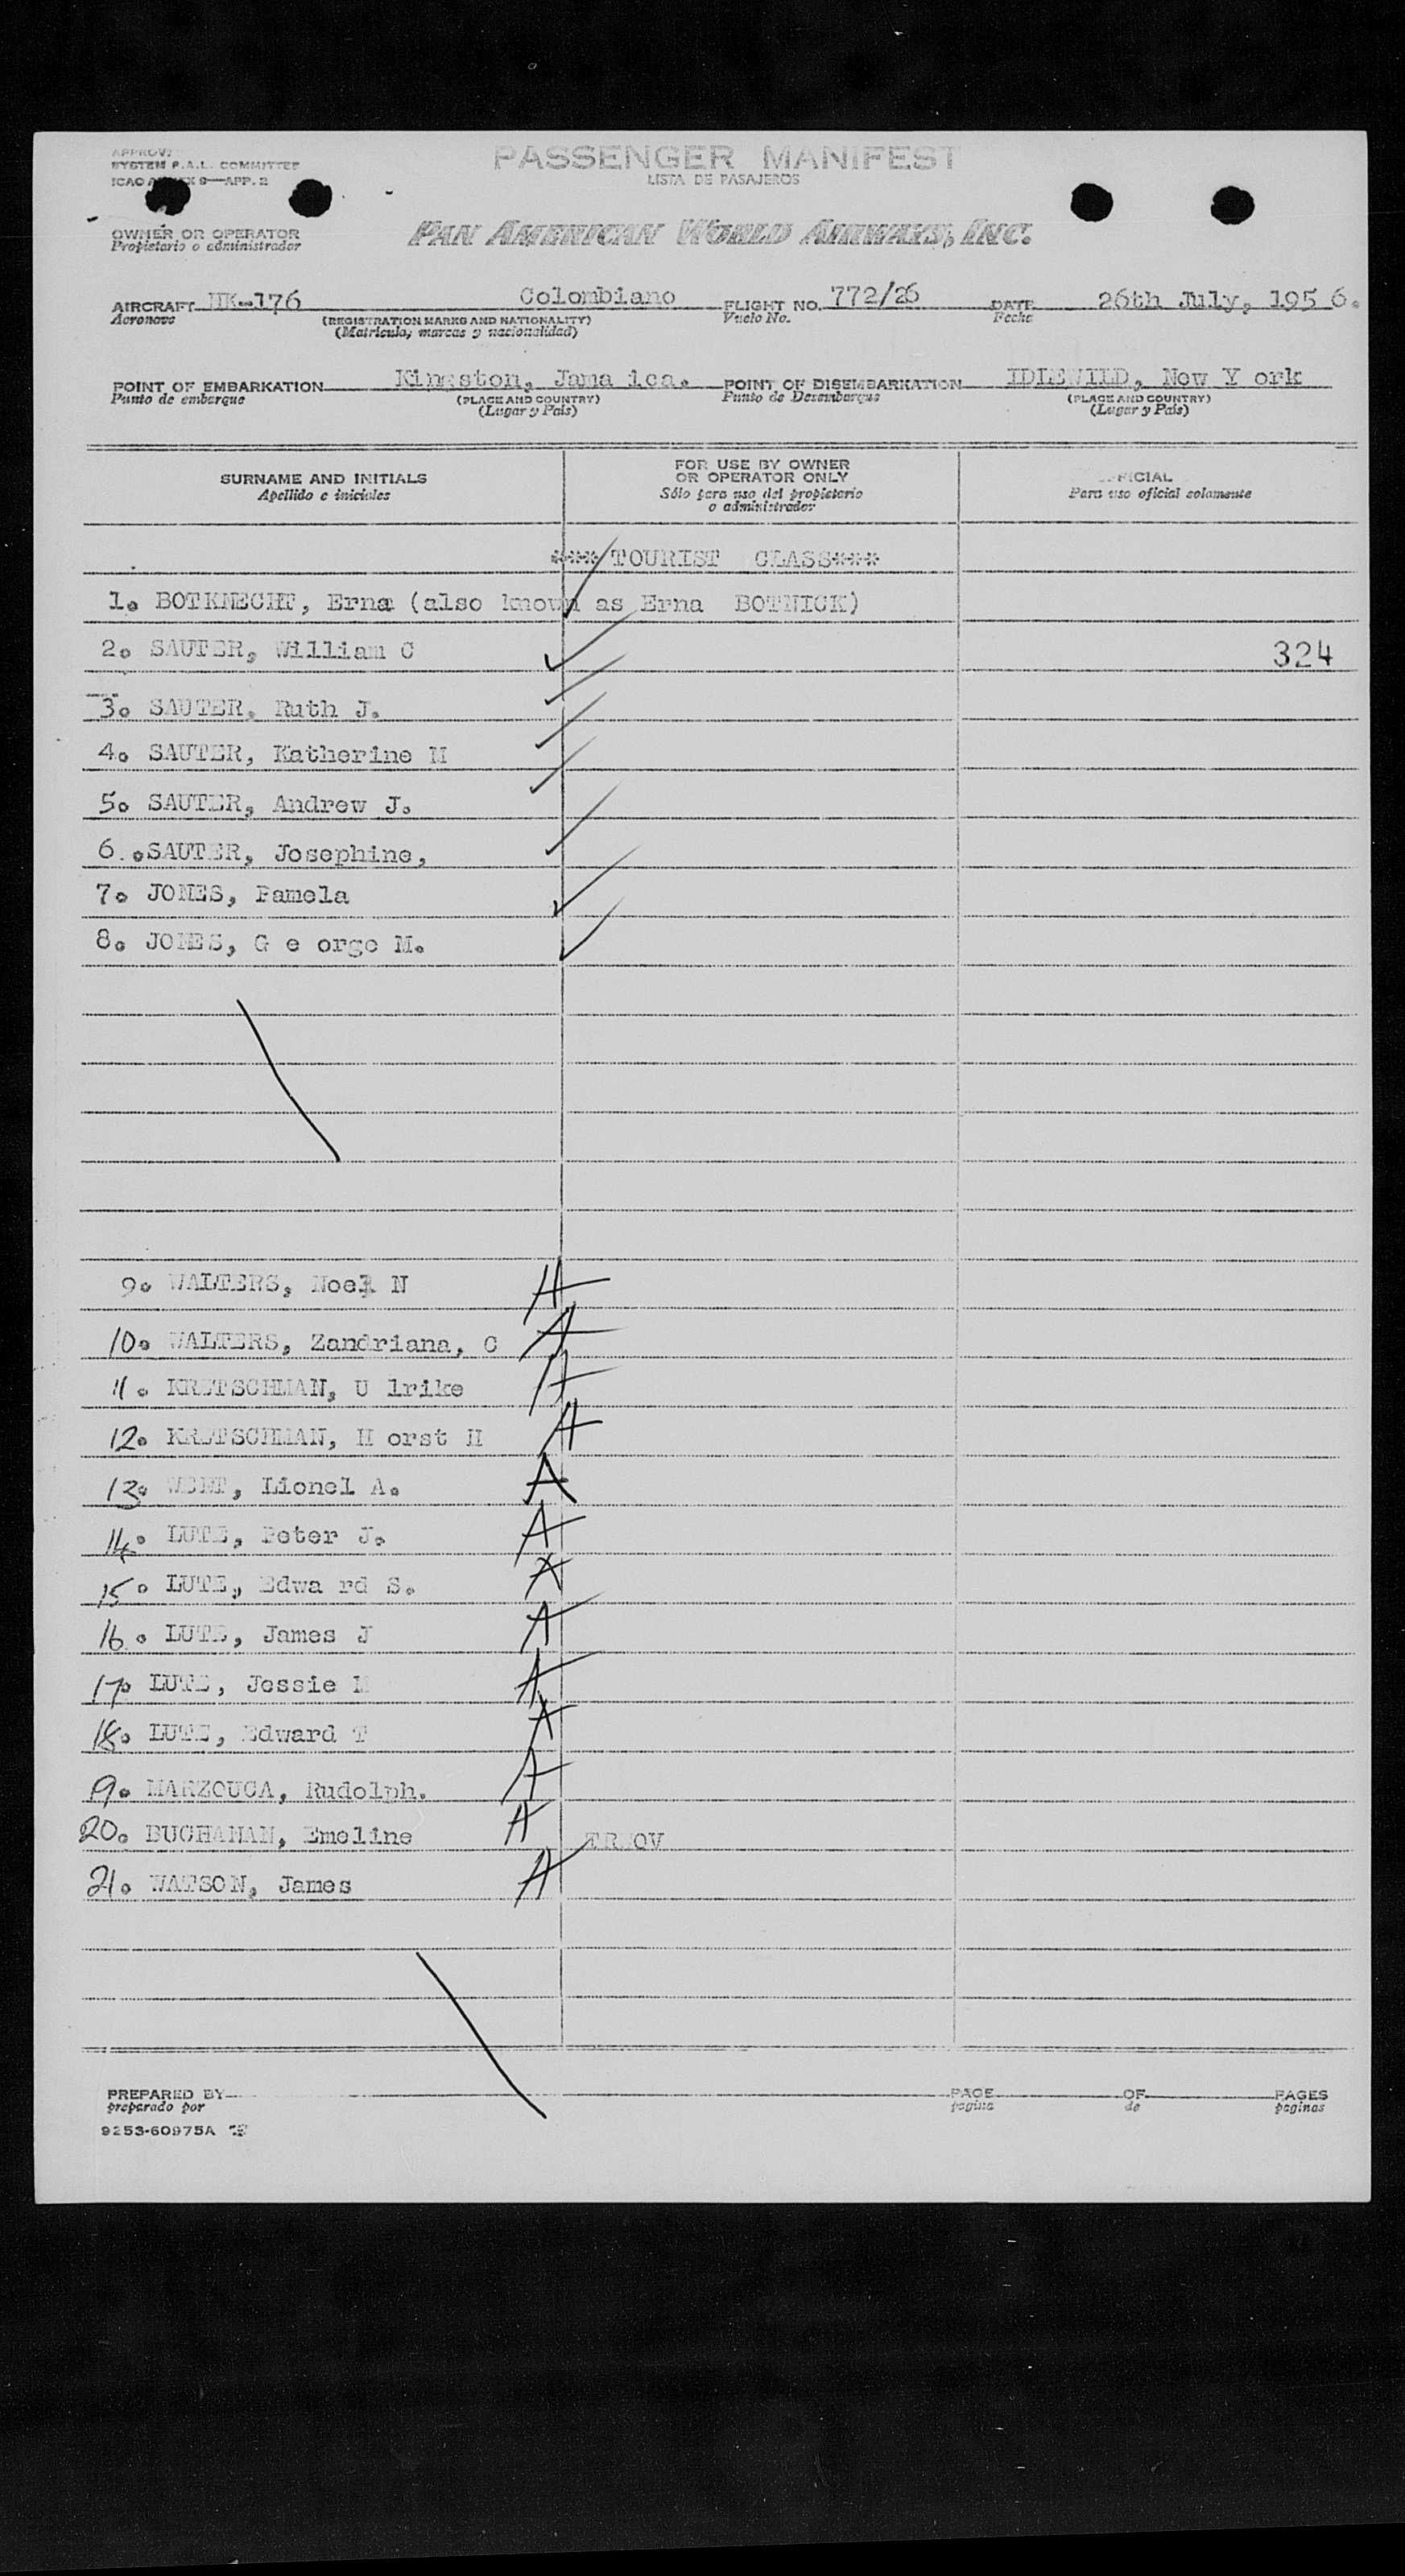 SYSTEM P.A.L. COMMITTEE
9—APP. 2
PASSENGER MANIFEST
LISTA DE PASAJEROS
OWNER OR OPERATOR
Propietario o administrador
PAN AMERICAN WORLD AIRWAYS, INC.
AIRCRAFT HK-176 Colombiano FLIGHT NO. 772/26 DATE 26th July, 195 6.
Aeronave (REGISTRATION MARKS AND NATIONALITY) Vuelo No. Fecha
(Matricula, marcas y nacionalidad)
POINT OF EMBARKATION Kingston, Jama ica. POINT OF DISEMBARKATION IDLEWILD, New Y ork
Punto de embarque (PLACE AND COUNTRY) Punto de Desembarque (PLACE AND COUNTRY)
(Lugar y País) (Lugar y País)
SURNAME AND INITIALS
Apellido e iniciales
FOR USE BY OWNER
OR OPERATOR ONLY
Sólo para uso del propietario
o administrador
Para uso oficial solamente
*** TOURIST CLASS***
1. BOTKNECHT, Erna (also known as Erna BOTNICK)
2. SAUTER, William C 324
3. SAUTER, Ruth J.
4. SAUTER, Katherine M
5. SAUTER, Andrew J.
6 .SAUTER, Josephine,
7. JONES, Pamela
8. JONES, G e orge M.
9. WALTERS, Noel N A
10. WALTERS, Zandriana, C A
11. KRETSCHMAN, U lrike A
12. KRETSCHMAN, H orst H A
13. Lionel A. A
14. LUTE, Peter J. A
15. LUTE, Edwa rd S. A
16. LUTE, James J A
17. LUTE, Jessie A
18. LUTE, Edward T A
19. MARZOUCA, Rudolph. A
20. BUCHANAN, Emeline A
21. WATSON, James A
PREPARED BY PAGE OF PAGES
preparado por pagina de paginas
9253-60975A